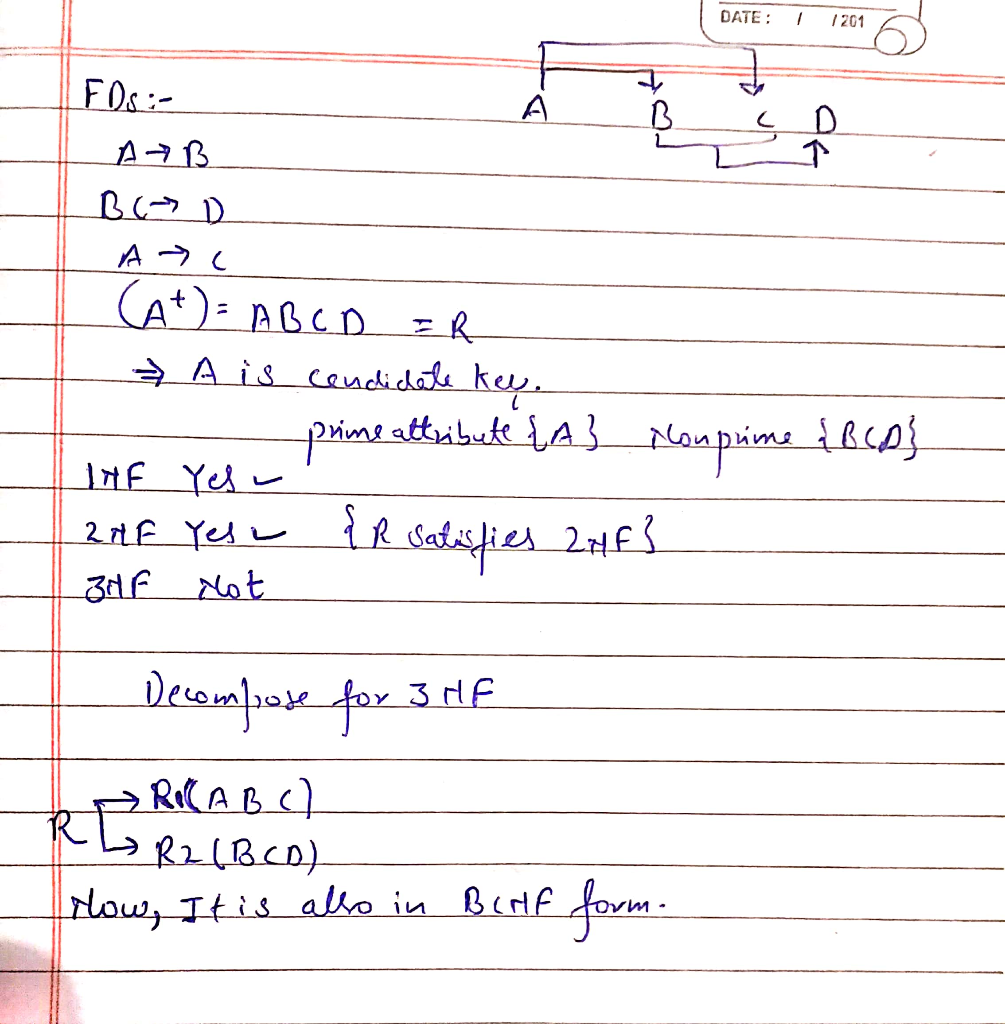 DATE: / /201
FDs :-
A B C D
A → B
BC → D
A → C
(A⁺) = ABCD = R
⇒ A is candidate key.
prime attribute {A} Nonprime {BCD}
1NF Yes ✓
2NF Yes ✓ {R Satisfies 2NF}
3NF Not
Decompose for 3NF
R → R1(ABC)
→ R2(BCD)
Now, It is also in BCNF form.